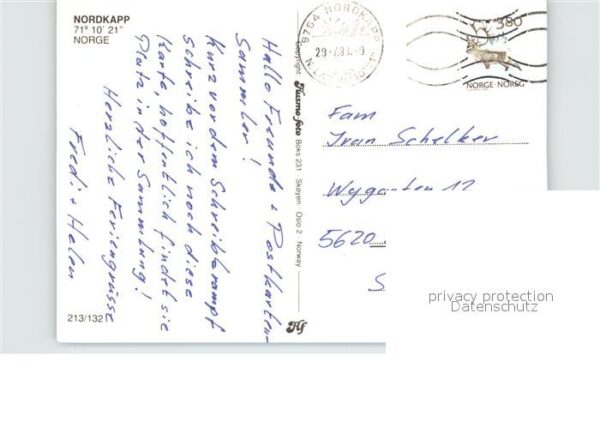 NORDKAPP
71° 10' 21"
NORGE
Hallo Freunde + Postkarten-
Sammler!
Kurz vor dem Schreibkrampf
schreibe ich noch diese
Karte, hoffentlich findet sie
Platz in der Sammlung!
Herzliche Feriengrüsse
Fredi + Helen
213/132
Copyright: Husmo foto Boks 231 Skøyen Oslo 2 Norway
Hf
9764 NORDKAPP
380
NORGE NOREG
Fam
Ivan Schelker
Wygarten 12
5620
S
privacy protection
Datenschutz